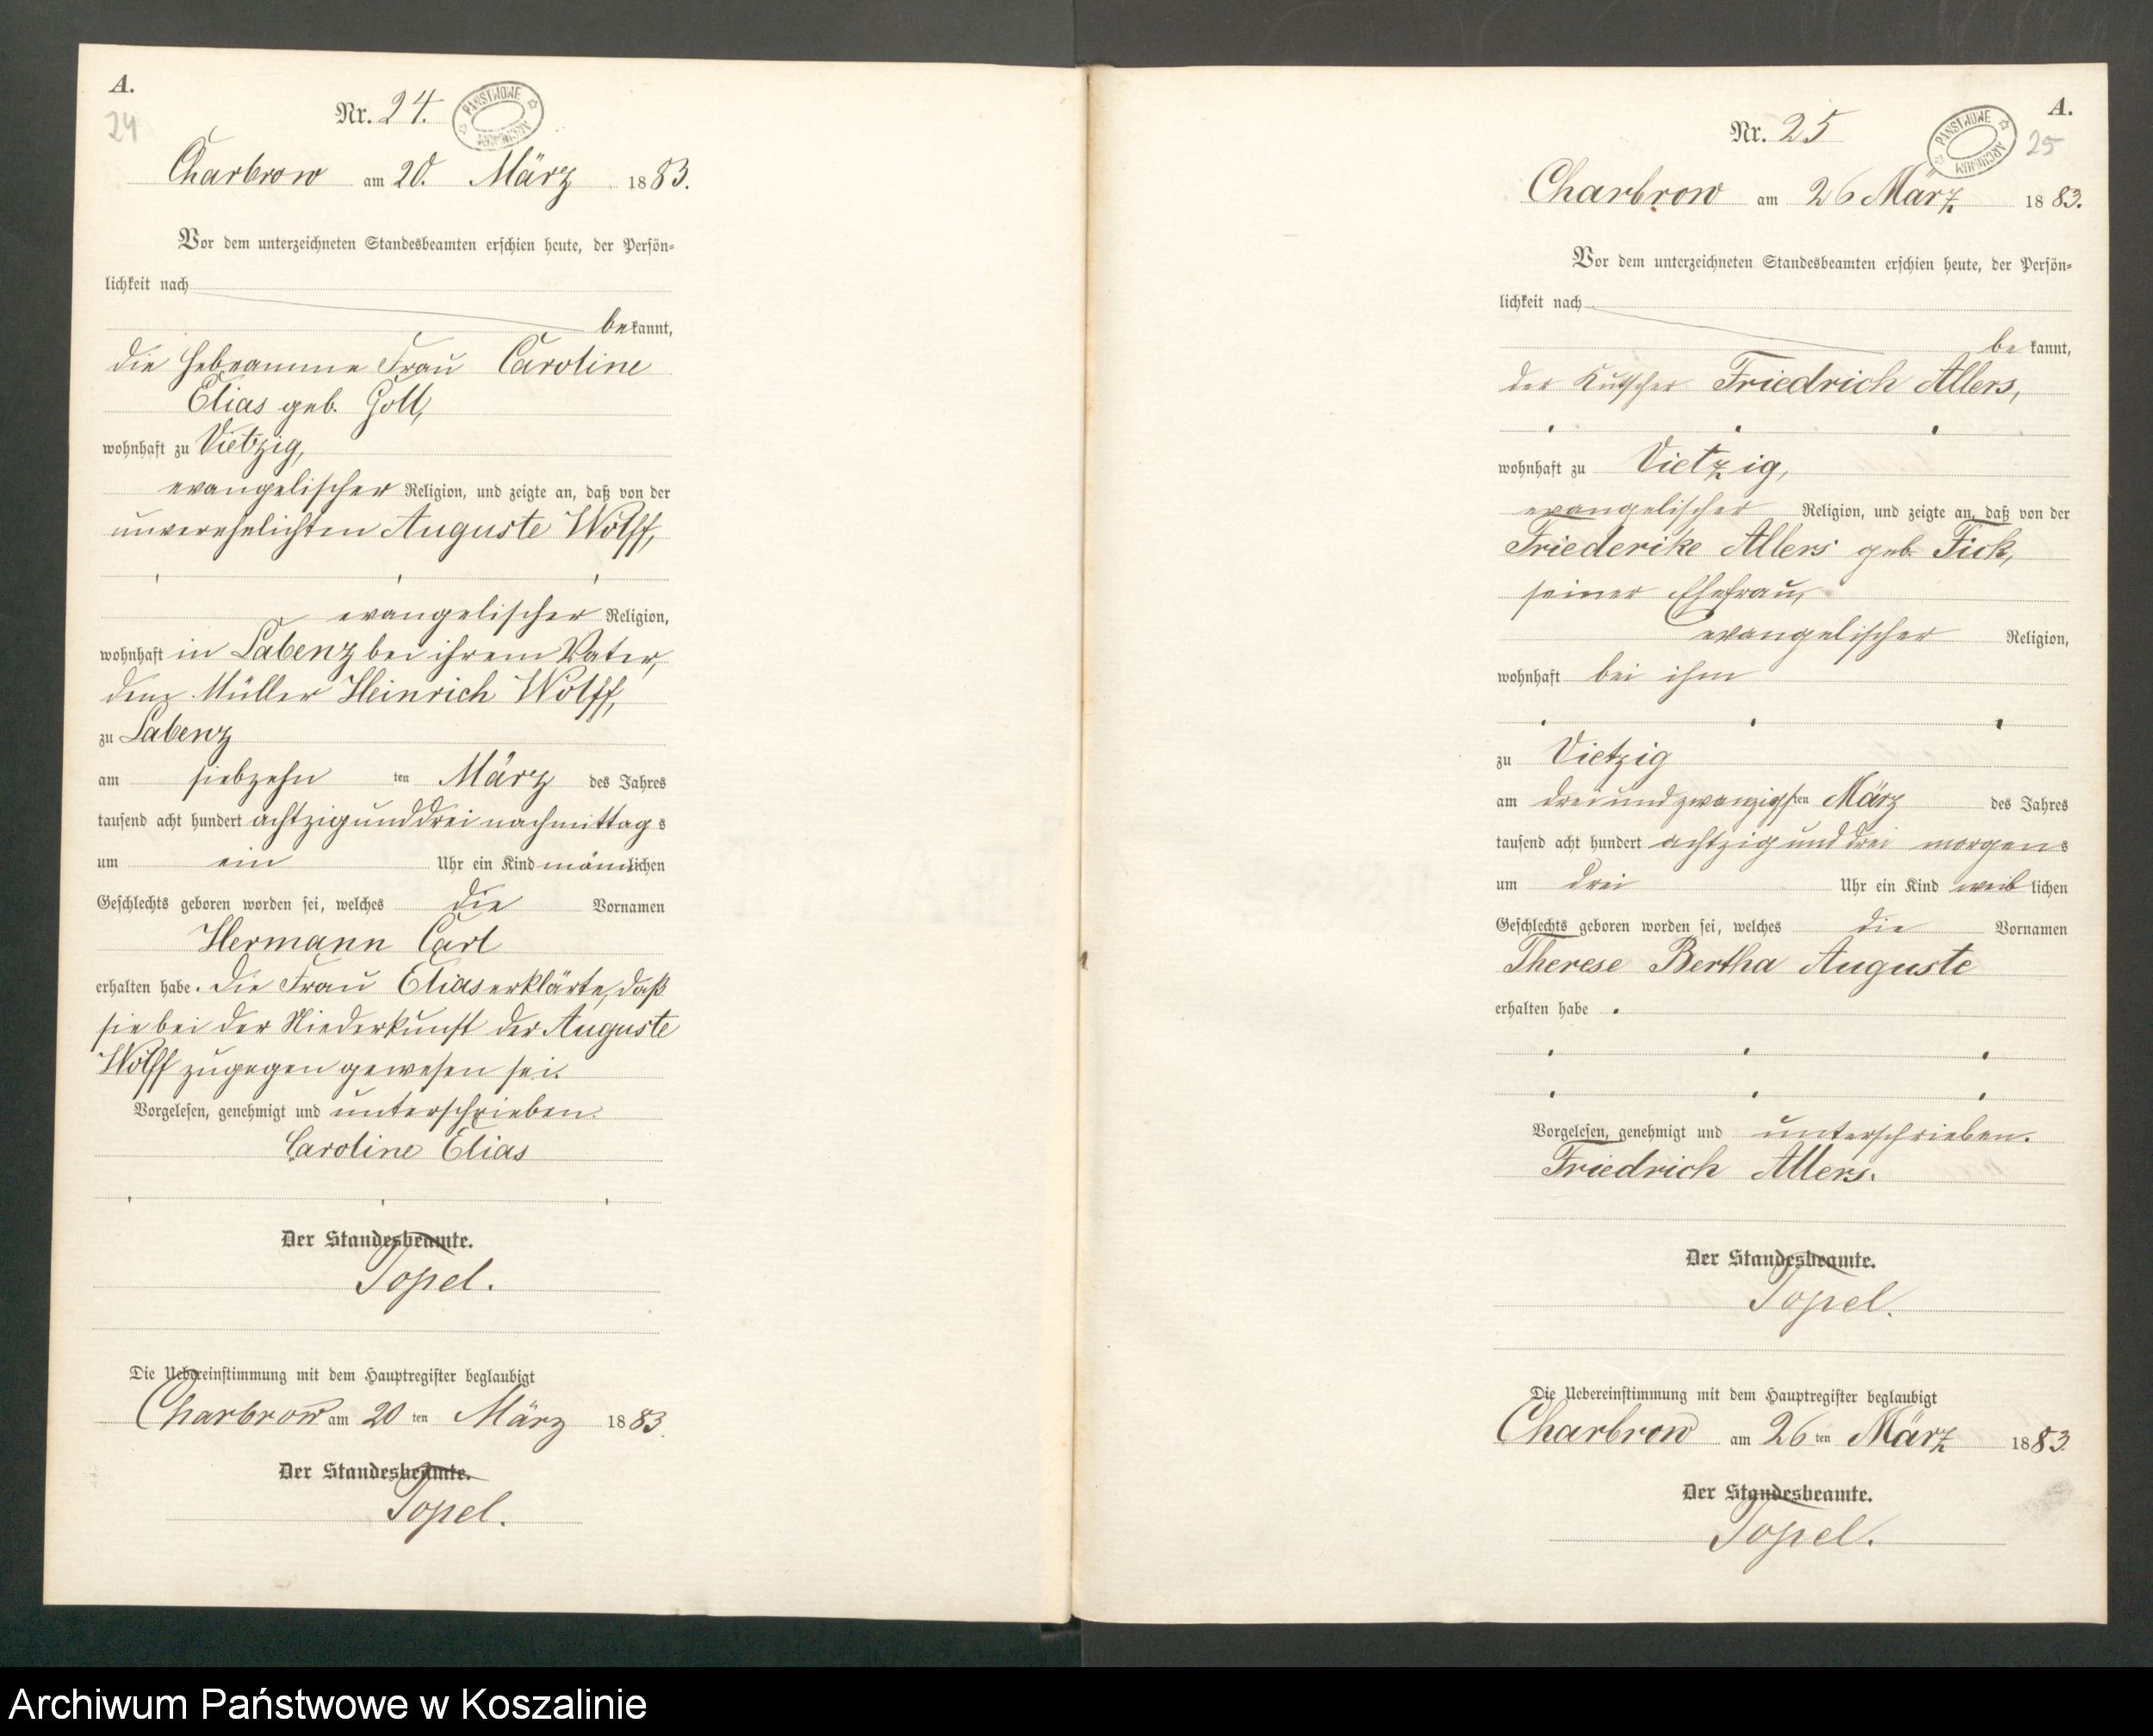 A.
24
Nr. 24.
PAŃSTWOWE ARCHIWUM
Charbrow am 20. März 1883.
Vor dem unterzeichneten Standesbeamten erschien heute, der Persön-
lichkeit nach
bekannt,
die Hebeamme Frau Caroline
Elias geb. Goll,
wohnhaft zu Vietzig,
evangelischer Religion, und zeigte an, daß von der
unverehelichten Auguste Wolff,
evangelischer Religion,
wohnhaft in Labenz bei ihrem Vater,
dem Müller Heinrich Wolff,
zu Labenz
am siebzehn ten März des Jahres
tausend acht hundert achtzigunddrei nachmittags
um ein Uhr ein Kind männlichen
Geschlechts geboren worden sei, welches die Vornamen
Hermann Carl
erhalten habe. Die Frau Elias erklärte, daß
sie bei der Niederkunft der Auguste
Wolff zugegen gewesen sei.
Vorgelesen, genehmigt und unterschrieben.
Caroline Elias
Der Standesbeamte.
Topel.
Die Uebereinstimmung mit dem Hauptregister beglaubigt
Charbrow am 20 ten März 1883.
Der Standesbeamte.
Topel.
A.
25
Nr. 25
PAŃSTWOWE ARCHIWUM
Charbrow am 26 März 1883.
Vor dem unterzeichneten Standesbeamten erschien heute, der Persön-
lichkeit nach
be kannt,
der Kutscher Friedrich Allers,
wohnhaft zu Vietzig,
evangelischer Religion, und zeigte an, daß von der
Friederike Allers geb. Fick,
seiner Ehefrau,
evangelischer Religion,
wohnhaft bei ihm
zu Vietzig
am dreiundzwanzigsten März des Jahres
tausend acht hundert achtzig und drei morgens
um drei Uhr ein Kind weiblichen
Geschlechts geboren worden sei, welches die Vornamen
Therese Bertha Auguste
erhalten habe.
Vorgelesen, genehmigt und unterschrieben.
Friedrich Allers.
Der Standesbeamte.
Topel.
Die Uebereinstimmung mit dem Hauptregister beglaubigt
Charbrow am 26 ten März 1883.
Der Standesbeamte.
Topel.
Archiwum Państwowe w Koszalinie